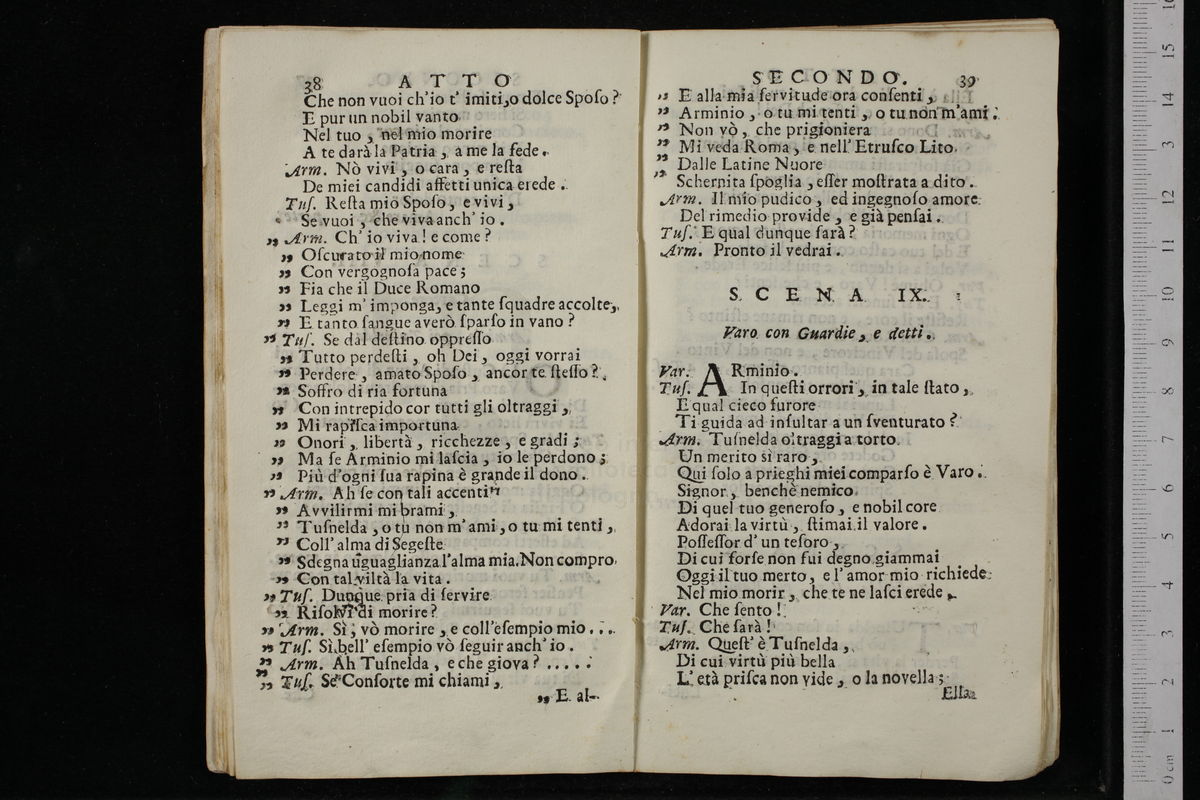 38 ATTO
Che non vuoi ch'io t' imiti, o dolce Spoſo?
E pur un nobil vanto
Nel tuo, nel mio morire
A te darà la Patria, a me la fede.
Arm. Nò vivi, o cara, e reſta
De miei candidi affetti unica erede.
Tuſ. Reſta mio Spoſo, e vivi,
Se vuoi, che viva anch' io.
„ Arm. Ch' io viva! e come?
„ Oſcurato il mio nome
„ Con vergognoſa pace;
„ Fia che il Duce Romano
„ Leggi m' imponga, e tante ſquadre accolte,
„ E tanto ſangue averò ſparſo in vano?
„ Tuſ. Se dal deſtino oppreſſo
„ Tutto perdeſti, oh Dei, oggi vorrai
„ Perdere, amato Spoſo, ancor te ſteſſo?
„ Soffro di ria fortuna
„ Con intrepido cor tutti gli oltraggi,
„ Mi rapiſca importuna
„ Onori, libertà, ricchezze, e gradi;
„ Ma ſe Arminio mi laſcia, io le perdono;
„ Più d'ogni ſua rapina è grande il dono.
„ Arm. Ah ſe con tali accenti
„ Avvilirmi mi brami,
„ Tuſnelda, o tu non m' ami, o tu mi tenti,
„ Coll' alma di Segeſte
„ Sdegna uguaglianza l'alma mia. Non compro
„ Con tal viltà la vita.
„ Tuſ. Dunque pria di ſervire
„ Riſolvi di morire?
„ Arm. Sì, vò morire, e coll'eſempio mio...
„ Tuſ. Sì bell' eſempio vò ſeguir anch' io.
„ Arm. Ah Tuſnelda, e che giova? .....
„ Tuſ. Se Conſorte mi chiami,
„ E al-
SECONDO. 39
„ E alla mia ſervitude ora conſenti,
„ Arminio, o tu mi tenti, o tu non m'ami:
„ Non vò, che prigioniera
„ Mi veda Roma, e nell' Etruſco Lito
„ Dalle Latine Nuore
„ Schernita ſpoglia, eſſer moſtrata a dito.
Arm. Il mio pudico, ed ingegnoſo amore
Del rimedio provide, e già penſai.
Tuſ. E qual dunque ſarà?
Arm. Pronto il vedrai.
SCENA IX.
Varo con Guardie, e detti.
Var. ARminio.
Tuſ. In queſti orrori, in tale ſtato,
E qual cieco furore
Ti guida ad inſultar a un ſventurato?
Arm. Tuſnelda oltraggi a torto
Un merito sì raro,
Qui ſolo a prieghi miei comparſo è Varo.
Signor, benchè nemico
Di quel tuo generoſo, e nobil core
Adorai la virtù, ſtimai il valore.
Poſſeſſor d' un teſoro,
Di cui forſe non fui degno giammai
Oggi il tuo merto, e l' amor mio richiede
Nel mio morir, che te ne laſci erede.
Var. Che ſento!
Tuſ. Che ſarà!
Arm. Queſt' è Tuſnelda,
Di cui virtù più bella
L' età priſca non vide, o la novella;
Ella